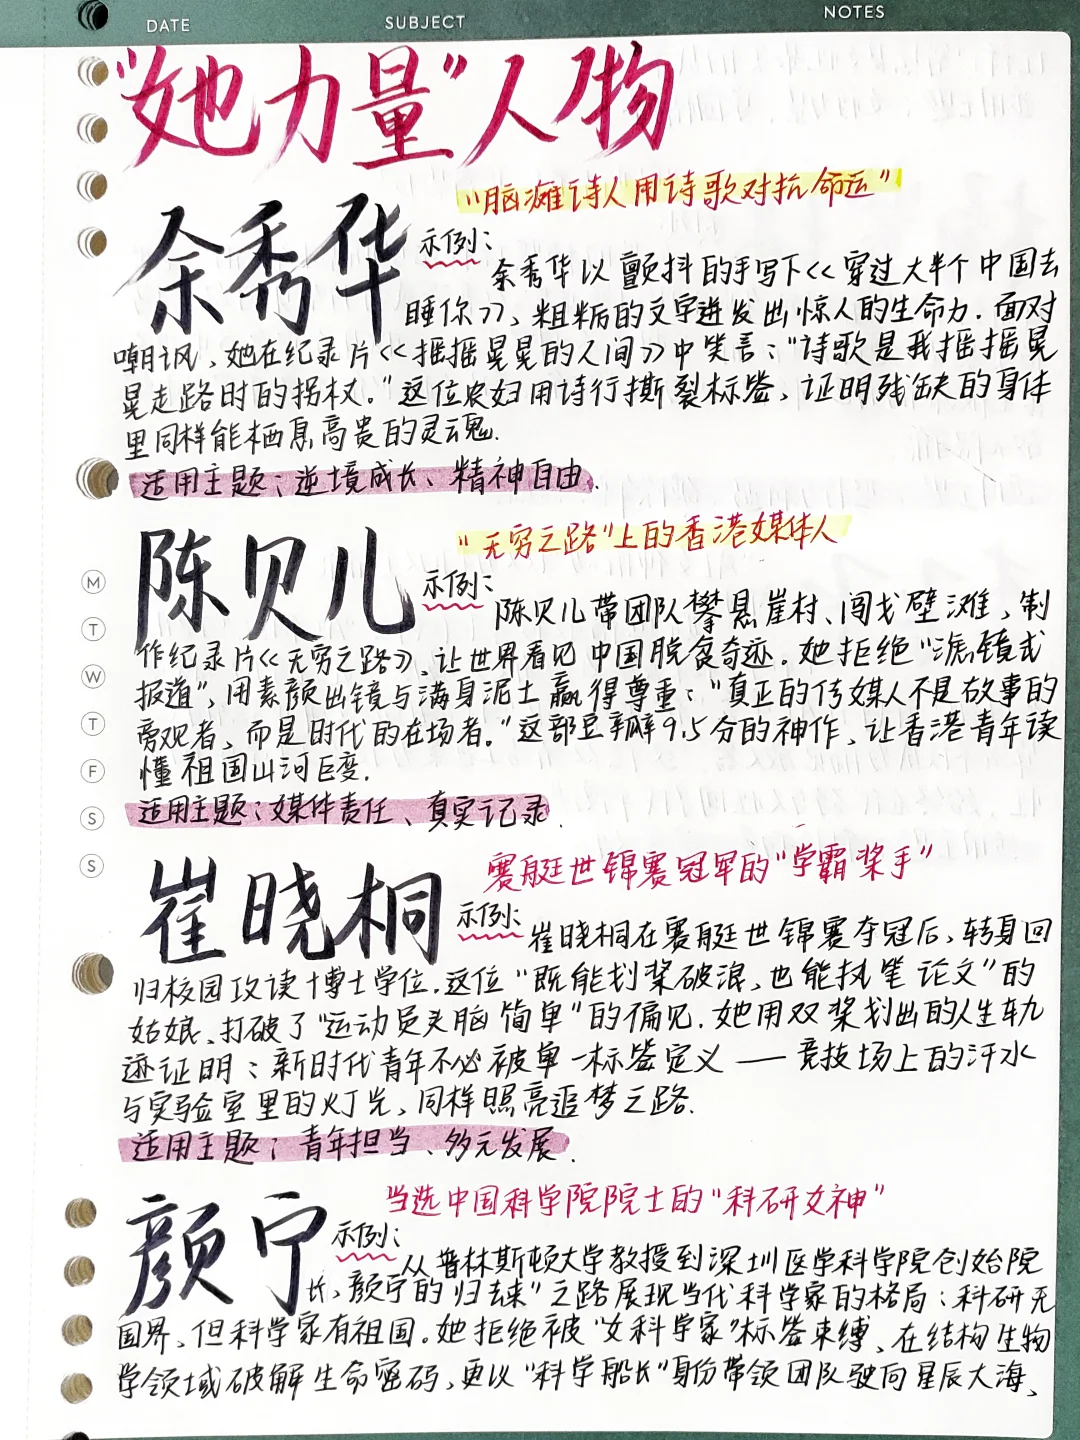 DATE SUBJECT NOTES
“她力量”人物
“脑瘫诗人用诗歌对抗命运”
余秀华
示例:
余秀华以颤抖的手写下<<穿过大半个中国去
睡你>>、粗粝的文字迸发出惊人的生命力.面对
嘲讽,她在纪录片<<摇摇晃晃的人间>>中笑言:“诗歌是我摇摇晃
晃走路时的拐杖。”这位农妇用诗行撕裂标签、证明残缺的身体
里同样能栖息高贵的灵魂.
适用主题:逆境成长、精神自由.
“无穷之路”上的香港媒体人
陈贝儿
示例:
陈贝儿带团队攀悬崖村、闯戈壁滩,制
作纪录片<<无穷之路>>、让世界看见中国脱贫奇迹.她拒绝“滤镜式
报道”,用素颜出镜与满身泥土赢得尊重:“真正的传媒人不是故事的
旁观者、而是时代的在场者。”这部豆瓣9.5分的神作、让香港青年读
懂祖国山河巨变.
适用主题:媒体责任、真实记录.
赛艇世锦赛冠军的“学霸桨手”
崔晓桐
示例:
崔晓桐在赛艇世锦赛夺冠后,转身回
归校园攻读博士学位.这位“既能划桨破浪,也能执笔论文”的
姑娘、打破了“运动员头脑简单”的偏见.她用双桨划出的人生轨
迹证明:新时代青年不必被单一标签定义——竞技场上的汗水
与实验室里的灯光、同样照亮追梦之路.
适用主题:青年担当、多元发展.
当选中国科学院院士的“科研女神”
颜宁
示例:
从普林斯顿大学教授到深圳医学科学院创始院
长,颜宁的“归去来”之路展现当代科学家的格局:科研无
国界、但科学家有祖国.她拒绝被“女科学家”标签束缚、在结构生物
学领域破解生命密码、更以“科学船长”身份带领团队驶向星辰大海、
M
T
W
T
F
S
S